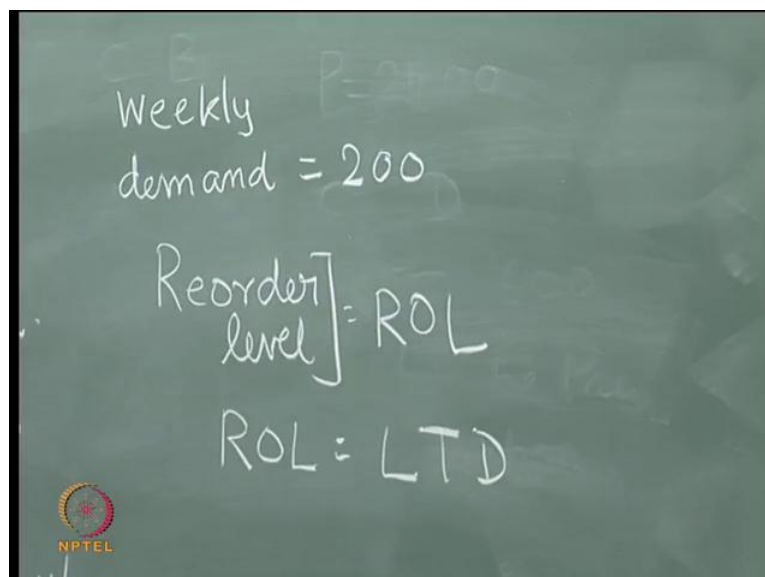 Weekly
demand = 200
Reorder
level] = ROL
ROL = LTD
NPTEL